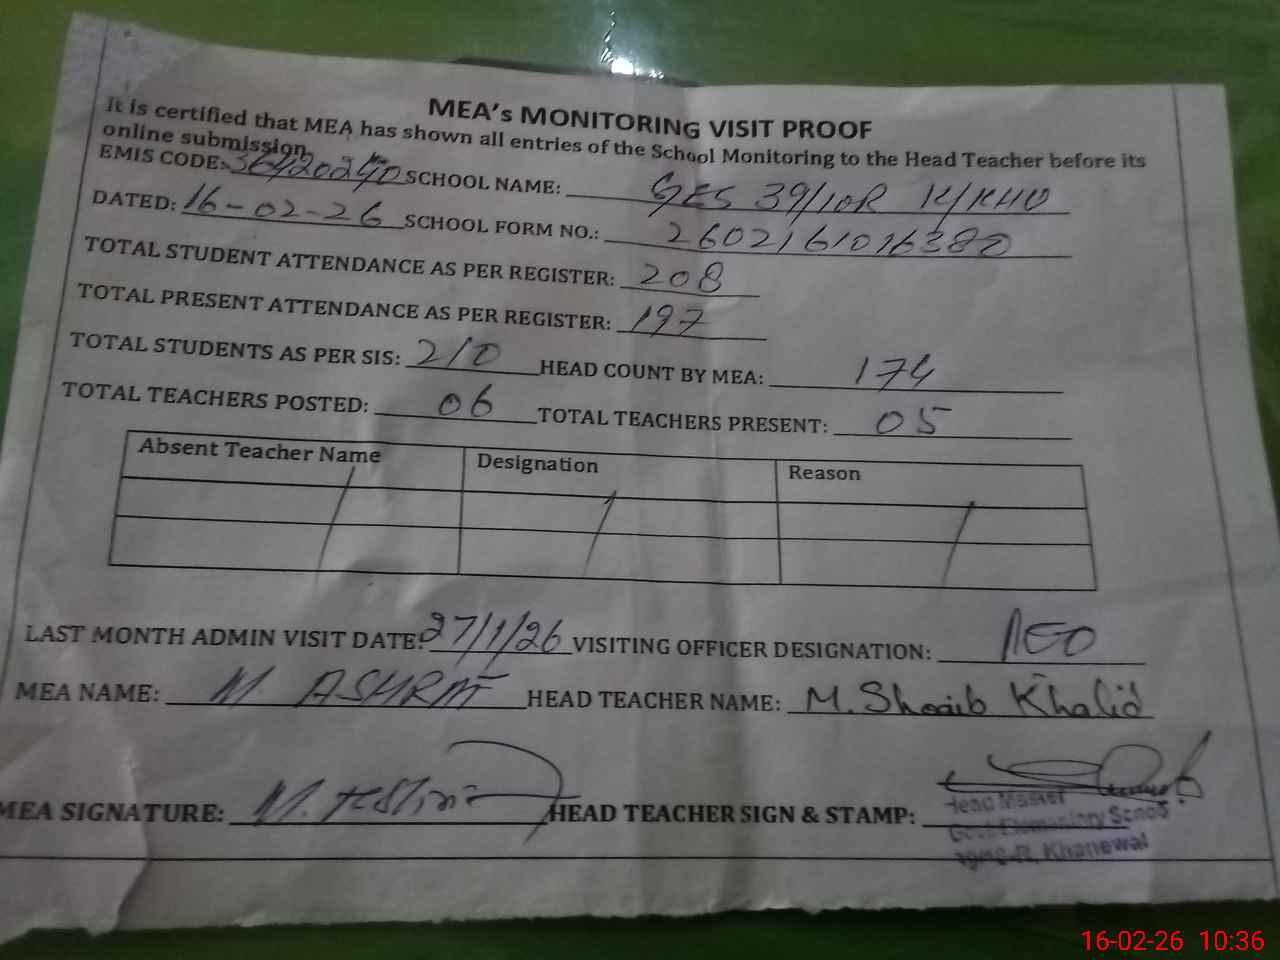 MEA's MONITORING VISIT PROOF
It is certified that MEA has shown all entries of the School Monitoring to the Head Teacher before its
online submission.
EMIS CODE: 36420240 SCHOOL NAME: GES 39/10R K/KHU
DATED: 16-02-26 SCHOOL FORM NO.: 2602161016380
TOTAL STUDENT ATTENDANCE AS PER REGISTER: 208
TOTAL PRESENT ATTENDANCE AS PER REGISTER: 197
TOTAL STUDENTS AS PER SIS: 210 HEAD COUNT BY MEA: 174
TOTAL TEACHERS POSTED: 06 TOTAL TEACHERS PRESENT: 05
Absent Teacher Name Designation Reason
LAST MONTH ADMIN VISIT DATE: 27/1/26 VISITING OFFICER DESIGNATION: AEO
MEA NAME: M. ASHRAF HEAD TEACHER NAME: M. Shoaib Khalid
MEA SIGNATURE: HEAD TEACHER SIGN & STAMP:
Head Master
Govt. Elementary School
39/10-R, Khanewal
16-02-26 10:36